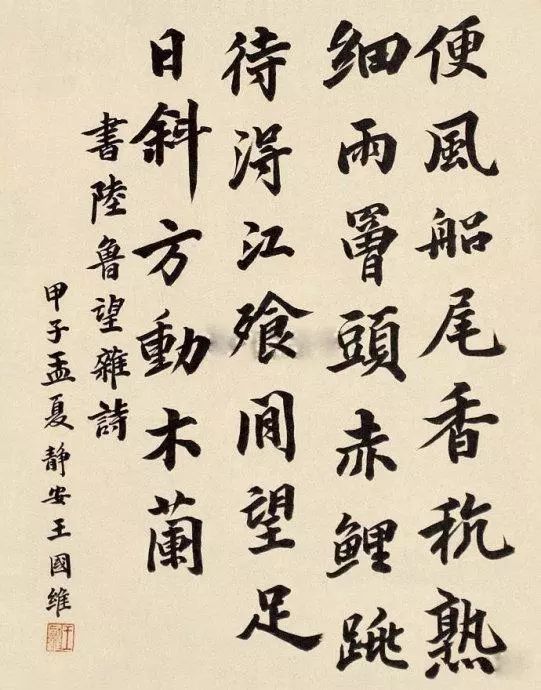 便風船尾香秔熟
細雨罾頭赤鯉跳
待得江飱閒望足
日斜方動木蘭
書陸魯望雜詩
甲子孟夏靜安王國維